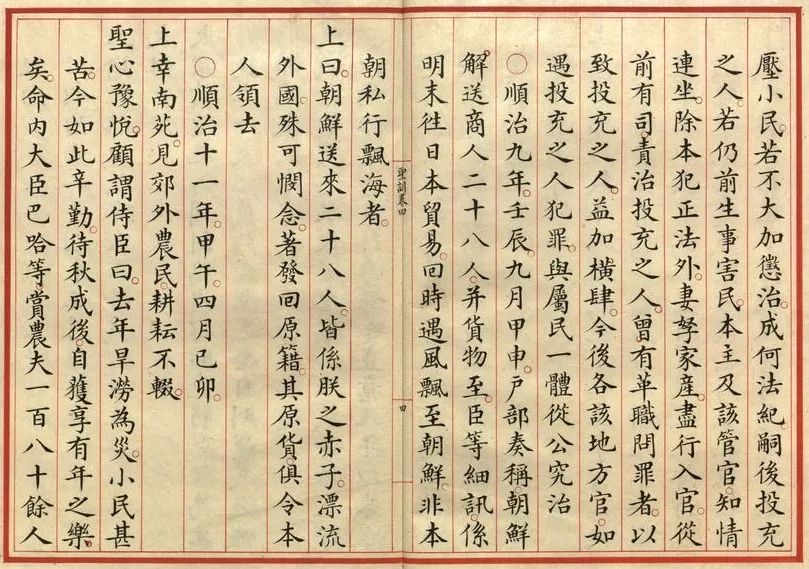 壓小民。若不大加懲治。成何法紀。嗣後投充
之人。若仍前生事害民。本主及該管官。知情
連坐。除本犯正法外。妻孥家產。盡行入官。從
前有司責治投充之人。曾有革職問罪者。以
致投充之人。益加橫肆。今後各該地方官。如
遇投充之人犯罪。與屬民一體從公究治
○順治九年。壬辰。九月甲申。戶部奏稱。朝鮮
解送商人二十八人。并貨物至。臣等細訊。係
明末往日本貿易。回時遇風飄至朝鮮。非本
聖訓卷四
四
朝私行飄海者。
上曰。朝鮮送來二十八人。皆係朕之赤子。漂流
外國。殊可憫念。著發回原籍。其原貨。俱令本
人領去
○順治十一年。甲午。四月己卯。
上幸南苑。見郊外農民。耕耘不輟。
聖心豫悅。顧謂侍臣曰。去年旱澇為災。小民甚
苦。今如此辛勤。待秋成後。自獲享有年之樂
矣。命內大臣巴哈等賞農夫一百八十餘人